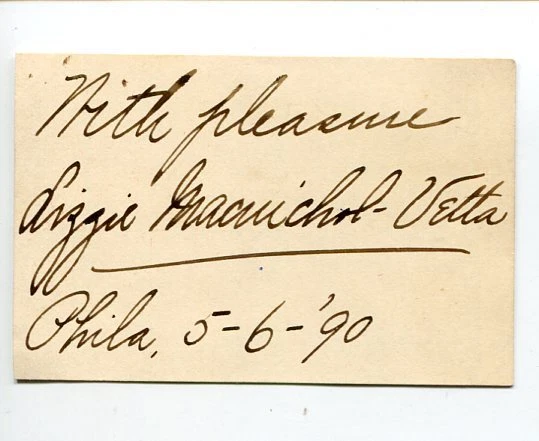 With pleasure
Lizzie Macnichol-Vetta
Phila, 5-6-'90